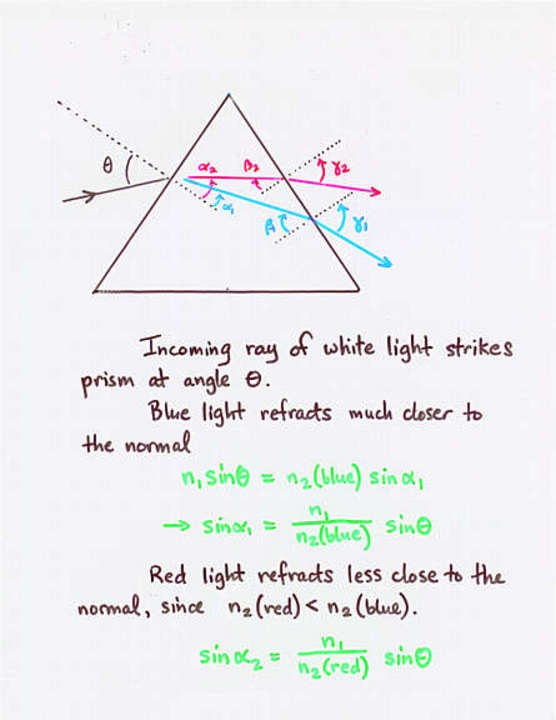 θ
α₂
β₂
γ₂
α₁
β₁
γ₁
Incoming ray of white light strikes
prism at angle θ.
Blue light refracts much closer to
the normal
n₁ sinθ = n₂(blue) sin α₁
→ sinα₁ = n₁ / n₂(blue) sinθ
Red light refracts less close to the
normal, since n₂(red) < n₂(blue).
sin α₂ = n₁ / n₂(red) sinθ